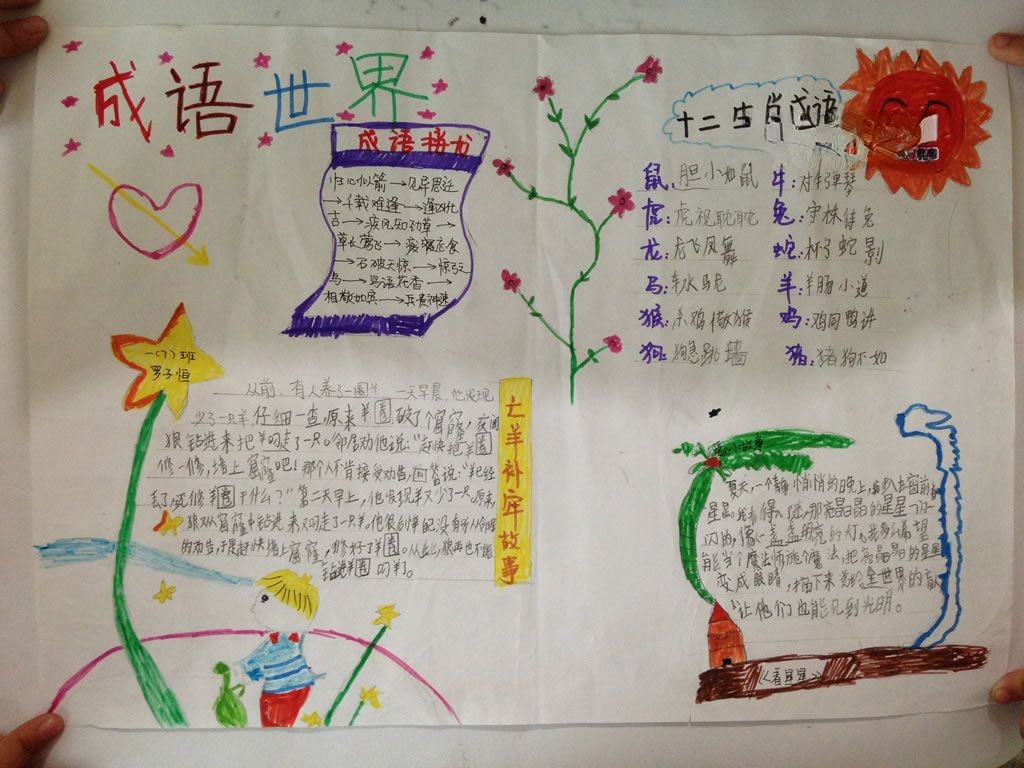 成语世界
成语接龙
归心似箭→见异思迁
→千载难逢→逢凶化
吉→疾风知劲草→
草长莺飞→废寝忘食
→石破天惊→惊弓之
鸟→鸟语花香→
相敬如宾→兵贵神速
十二生肖成语
鼠：胆小如鼠 牛：对牛弹琴
虎：虎视耽耽 兔：守株待兔
龙：龙飞凤舞 蛇：杯弓蛇影
马：车水马龙 羊：羊肠小道
猴：杀鸡儆猴 鸡：鸡同鸭讲
狗：狗急跳墙 猪：猪狗不如
一(7)班
罗子恒
亡羊补牢故事
从前，有人养了一圈羊 一天早晨，他发现
少了一只羊仔细一查，原来羊圈破了个窟窿，夜间
狼钻进来把羊叼走了一只。邻居劝他说："赶快把羊圈
修一修，堵上窟窿吧！那个人不肯接受劝告，回答说："羊已经
丢了，还修羊圈干什么？"第二天早上，他发现羊又少了一只。原来，
狼又从窟窿中钻进来又叼走了一只羊。他很后悔自己没有听从邻居
的劝告，于是赶快堵上窟窿，修好了羊圈。从此，狼再也不能
钻进羊圈叼羊。
小故事
夏天，一个静悄悄的晚上，我趴在窗前看
星星。那亮晶晶的星星一闪一
闪的，像一盏盏明亮的灯。我多么希望
能当个魔法师施个魔法，把亮晶晶的星星
变成眼睛，摘下来送给全世界的盲人
让他们也能见到光明。
《看星星》